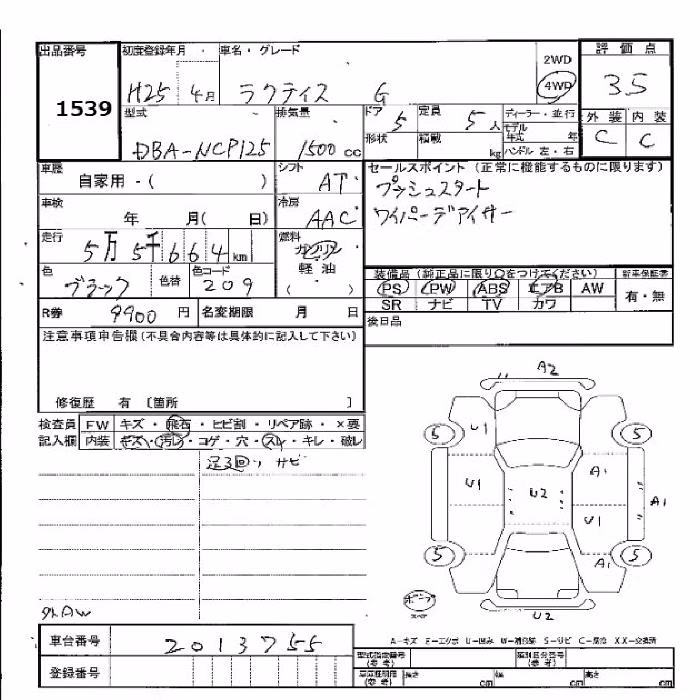 出品番号
1539
初度登録年月
H25 4月
車名・グレード
ラクティス G
2WD
4WD
評価点
3.5
型式
DBA-NCP125
排気量
1500 cc
ドア
5
定員
5人
形状
積載
kg
ディーラー・並行
モデル年式 年
ハンドル 左・右
外装 内装
C C
車歴
自家用・( )
シフト
AT
車検
年 月( 日)
冷房
AAC
走行
5万5千664km
燃料
ガソリン
軽油
( ・ )
色
ブラック
色替
色コード
209
R券
9900 円
名変期限 月 日
セールスポイント(正常に機能するものに限ります)
プッシュスタート
ワイパーデアイサー
装備品(純正品に限り○をつけてください)
PS PW ABS エアB AW
SR ナビ TV カワ
新車保証書
有・無
後日品
注意事項申告欄(不具合内容等は具体的に記入して下さい)
修復歴 有 〔箇所 〕
検査員記入欄
FW キズ・飛石・ヒビ割・リペア跡・×要
内装 キズ・汚レ・コゲ・穴・スレ・キレ・破レ
足3回り サビ
外AW
A2
5 U1 5
U1 U2 A1 A1
U1
5 A1 5
U2
A-キズ E-エクボ U-凹み W-補修跡 S-サビ C-腐食 XX-交換済
車台番号
2013755
登録番号
型式指定番号(参考)
類別区分番号(参考)
長さ cm 幅 cm 高さ cm